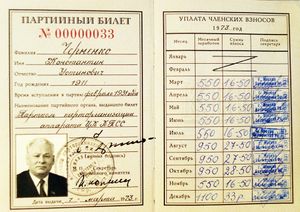 ПАРТИЙНЫЙ БИЛЕТ
№ 00000033
Фамилия Черненко
Имя Константин
Отчество Устинович
Год рождения 1911
Время вступления в партию февраль 1931 года
Наименование партийного органа, выдавшего билет
Партком парторганизации
аппарата ЦК КПСС
(личная подпись)
Дата выдачи 7 марта 1973 г.
УПЛАТА ЧЛЕНСКИХ ВЗНОСОВ
1978 год
Месяц Месячный заработок Сумма взноса Подпись секретаря
Январь
Февраль
Март 550 16-50
Апрель 550 16-50
Май 550 16-50
Июнь 550 16-50
Июль 16-50
Август 950 28-50
Сентябрь 950 28-50
Октябрь 950 28-50
Ноябрь 550 16-50
Декабрь 1100 33